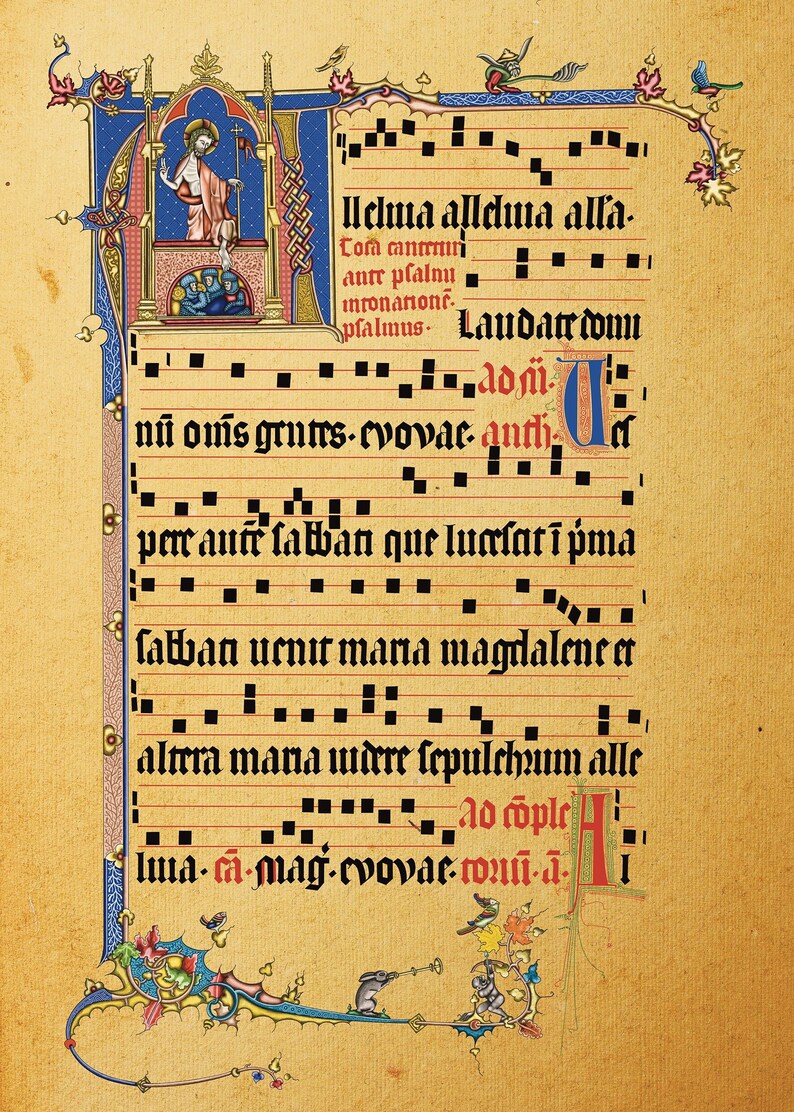 Alleluia alleluia alla.
Tota cantetur
ante psalmū
intonationē.
psalmus.
Laudate domi
nū om̄s gentes. evovae. Ad m̄. Ves
anth.
pere autē sabbati que lucescit ī p̄ma
sabbati uenit maria magdalene et
altera maria uidere sepulchrum alle
Ad cōple
luia. cā. maḡ. evovae. toriū. ā. Al